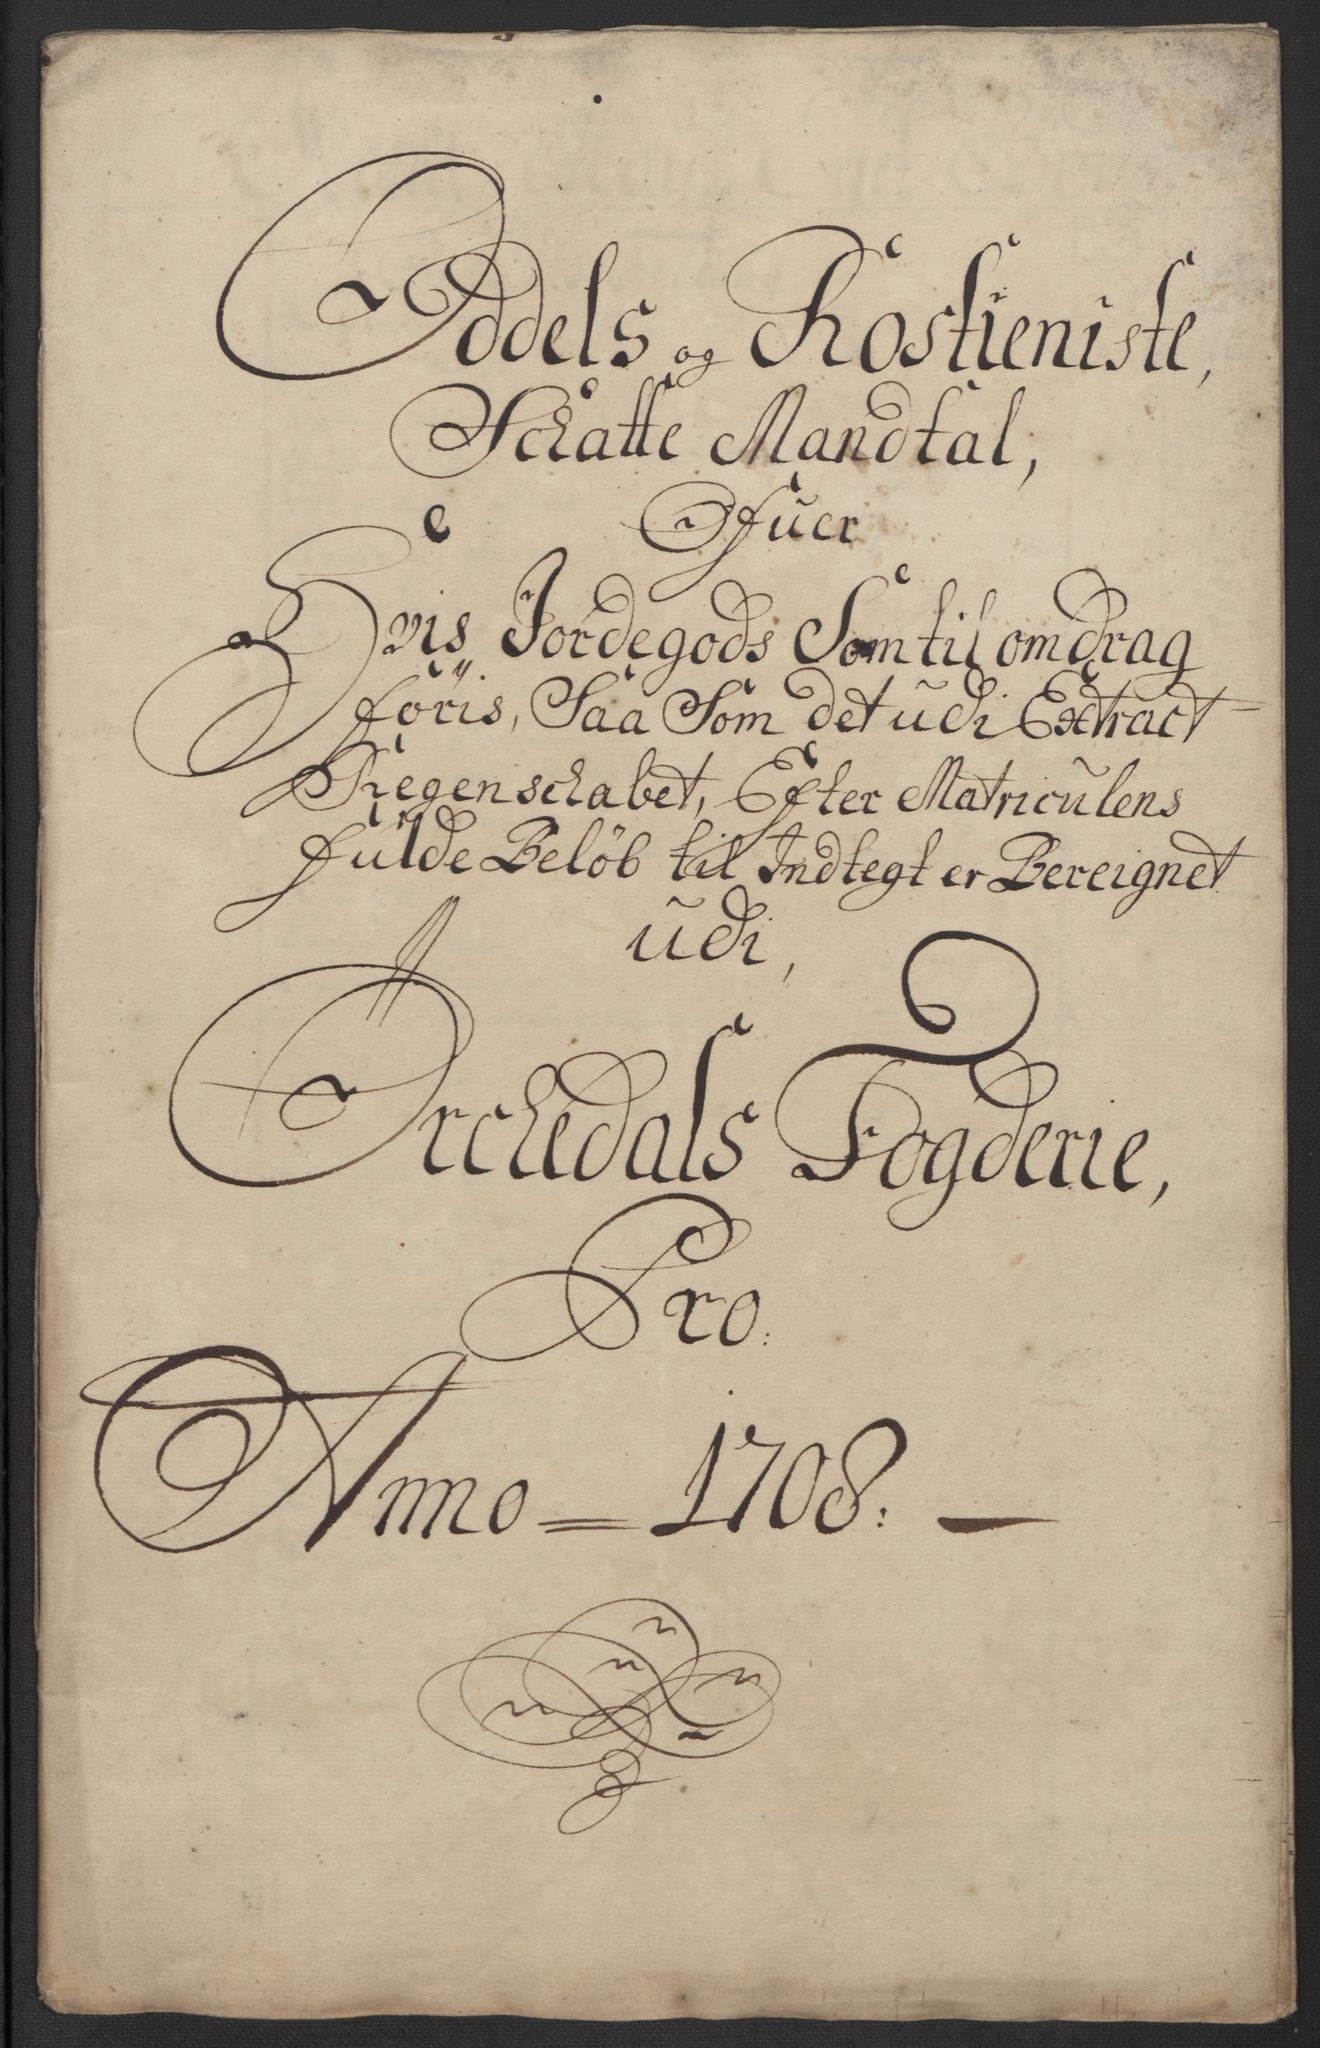 Oddels og Rostieniste,
Schatte Mandtal,
Ofuer
Hvis Jordegods Som til omdrag
föris, Saa Som det udi Extract
Regenschabet, Efter Matriculens
fulde Belöb til Indtegt er Bereignet
udi,
Orchedals Fogderie,
Pro.
Anno = 1708. —